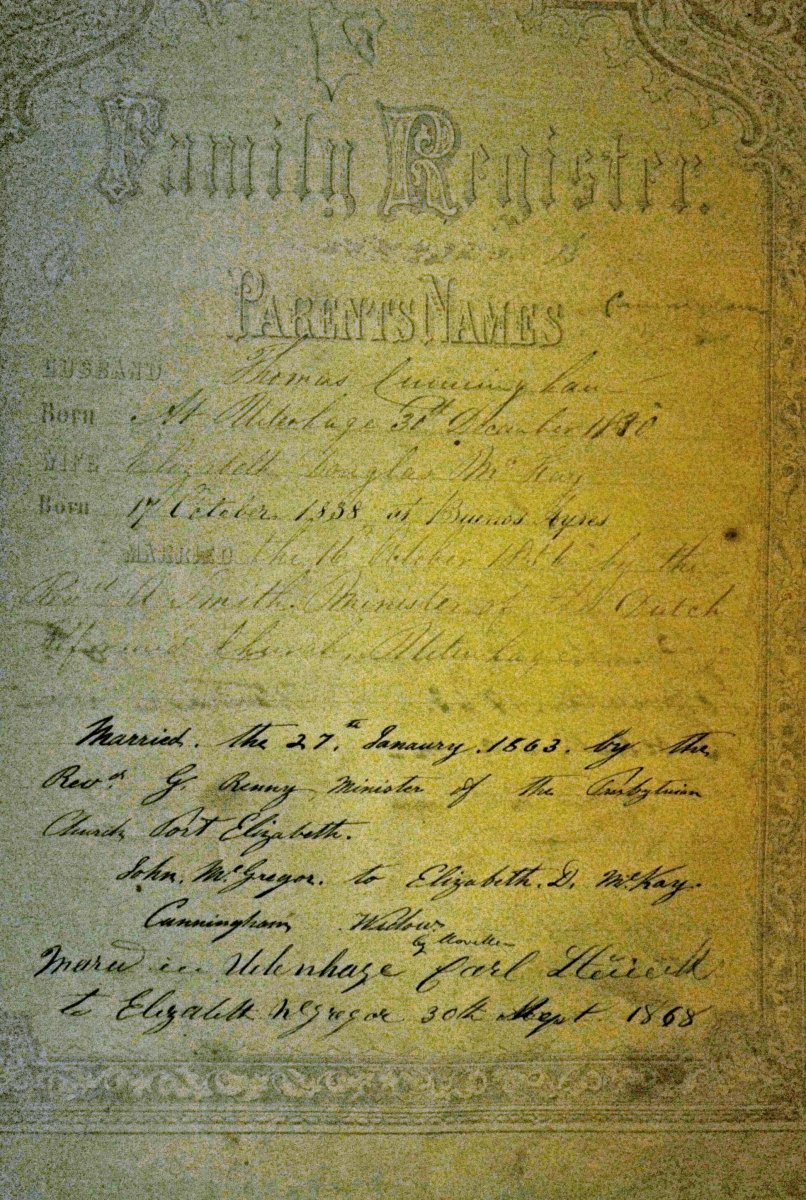 Family Register.
PARENTS NAMES
HUSBAND Thomas Cunningham
Born At Uitenhage 30th December 1830
WIFE Elizabeth Douglas McKay
Born 17 October 1838 at Buenos Ayres
MARRIED the 16 October 1856 by the
Revd A Smith Minister of the Dutch
Reformed Church, Uitenhage
Married. the 27th. Janaury. 1863. by the
Revd. G. Renny Minister of the Presbyterian
Church Port Elizabeth.
John. McGregor. to Elizabeth. D. McKay
Cunningham Widow
by
in Uitenhage Carl
to Elizabeth McGregor 30th Sept 1868